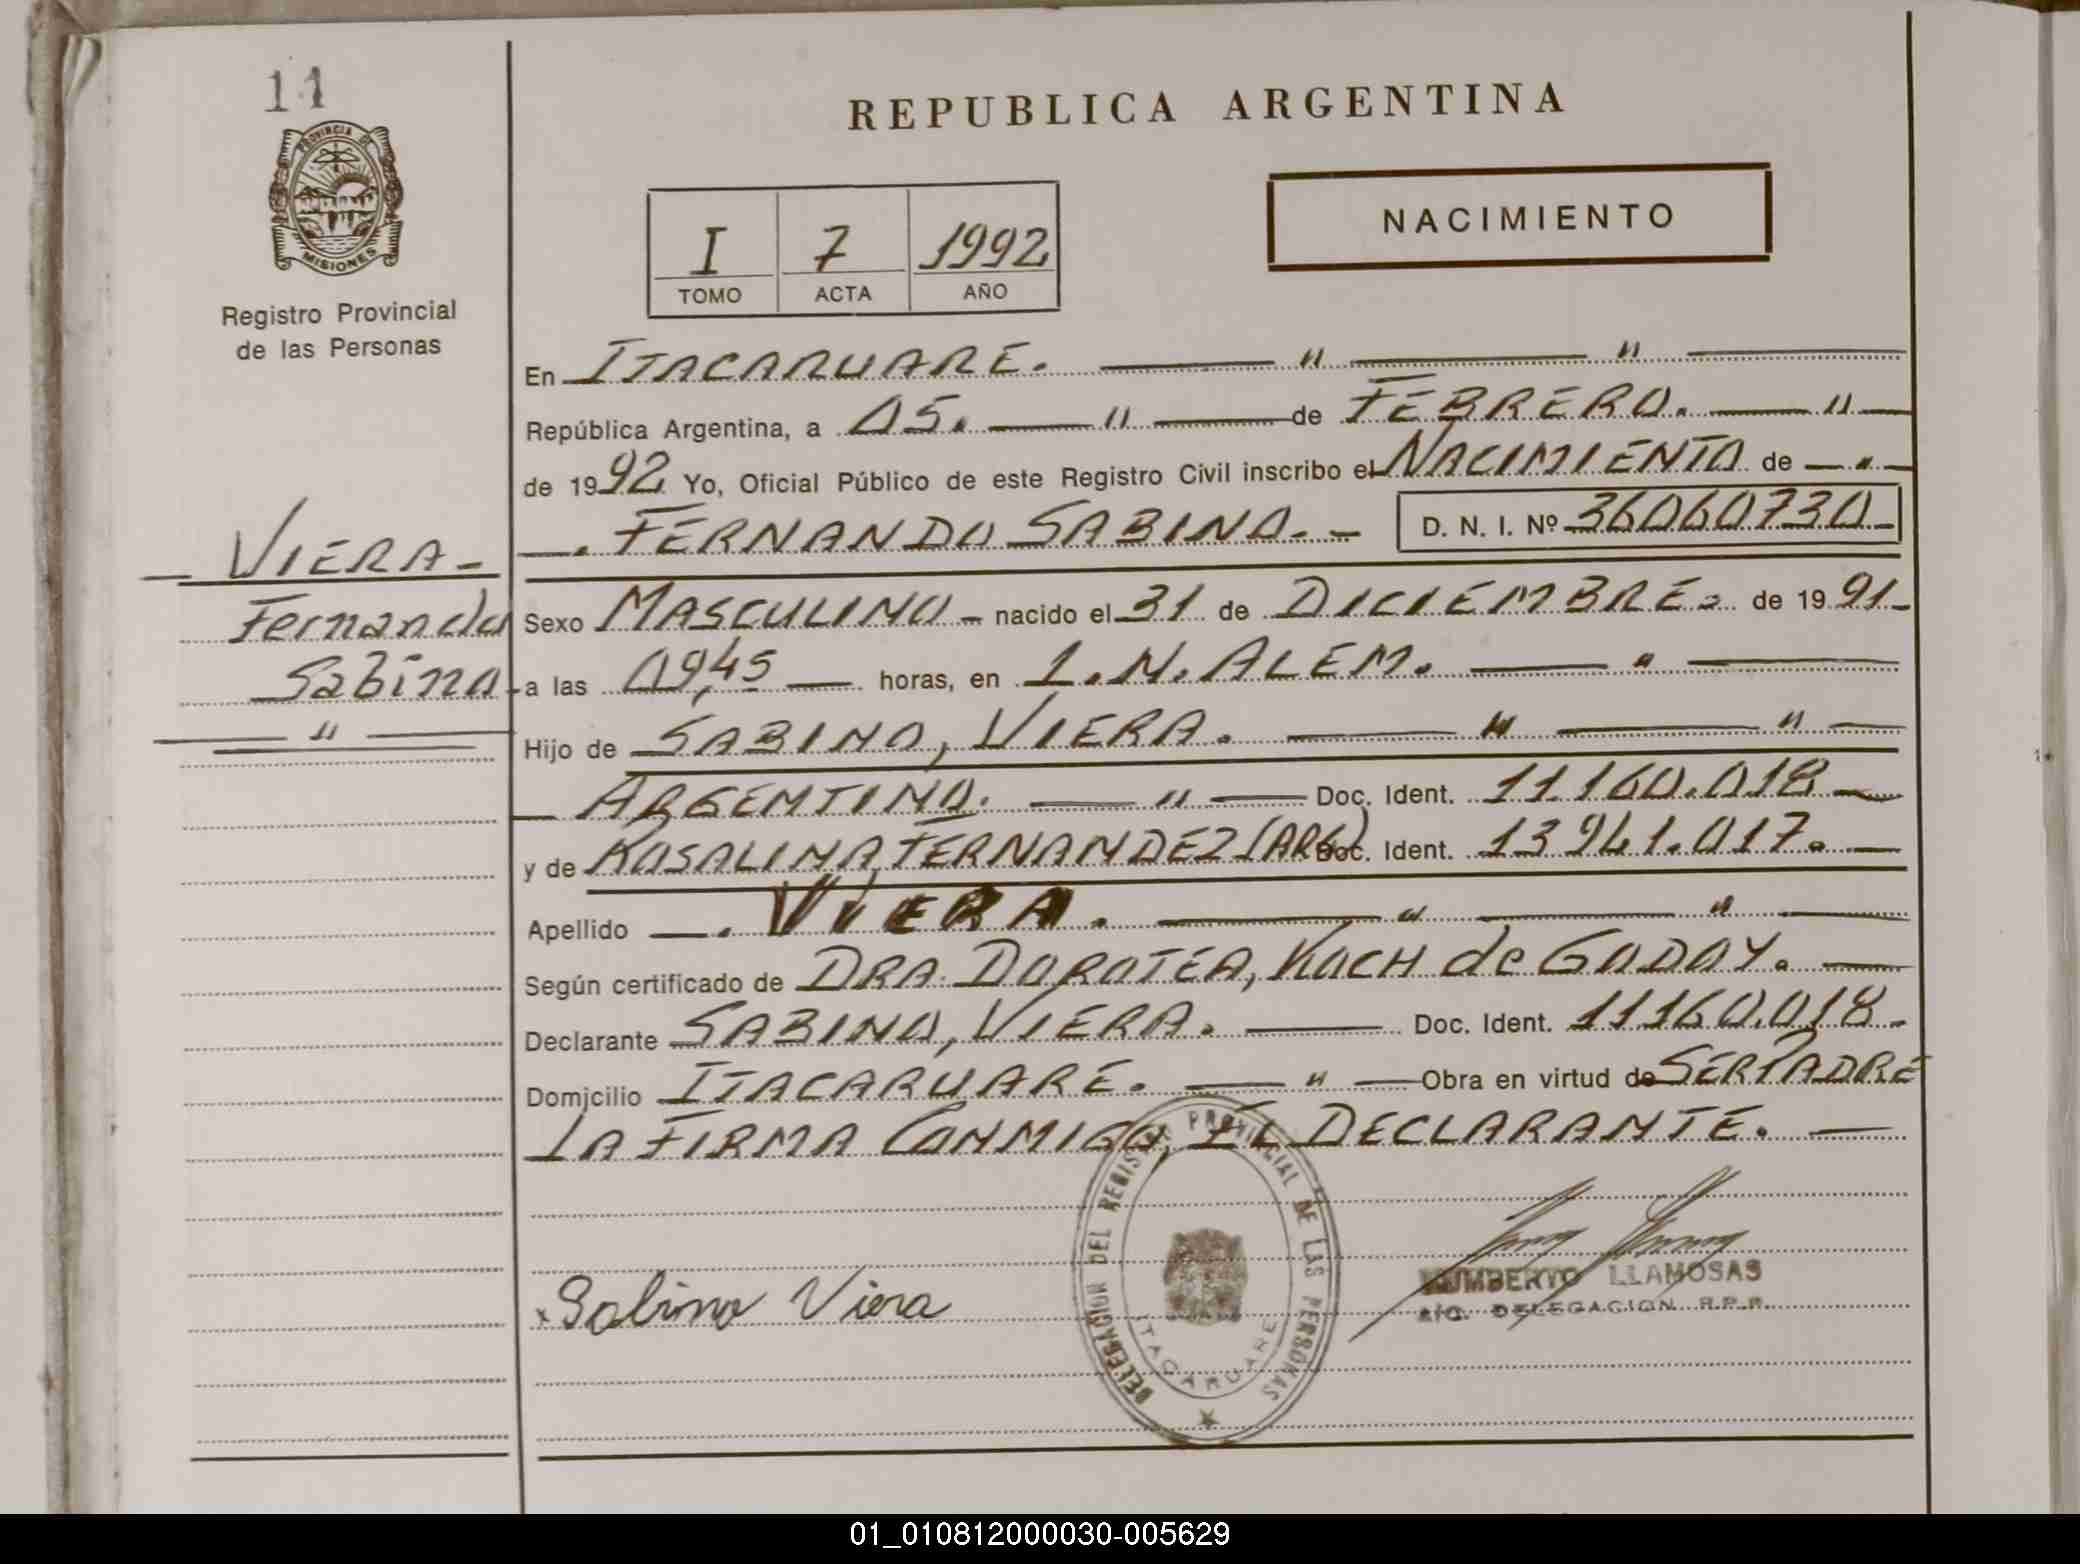 11
PROVINCIA DE
MISIONES
Registro Provincial
de las Personas
VIERA-
Fernando
Sabino
"
REPUBLICA ARGENTINA
NACIMIENTO
I 7 1992
TOMO ACTA AÑO
En ITACARUARE. " "
República Argentina, a 05. " de FEBRERO. "
de 1992 Yo, Oficial Público de este Registro Civil inscribo el NACIMIENTO de "
. FERNANDO SABINO. - D. N. I. Nº 36060730
Sexo MASCULINO - nacido el 31 de DICIEMBRE. de 1991
a las 09,45 horas, en L.N. ALEM. "
Hijo de SABINO, VIERA. " "
ARGENTINO. " Doc. Ident. 11.160.018
y de ROSALINA, FERNANDEZ (ARG) Doc. Ident. 13941.017.
Apellido . VIERA. " "
Según certificado de DRA. DOROTEA, KOCH de GODOY.
Declarante SABINO, VIERA. Doc. Ident. 11160.018.
Domicilio ITACARUARE. " Obra en virtud de SER PADRE
LA FIRMA CONMIGO, EL DECLARANTE.
x Sabino Viera
DELEGACION DEL REGISTRO PROVINCIAL DE LAS PERSONAS
ITACARUARE
HUMBERTO LLAMOSAS
A/C. DELEGACION R.P.P.
01_010812000030-005629